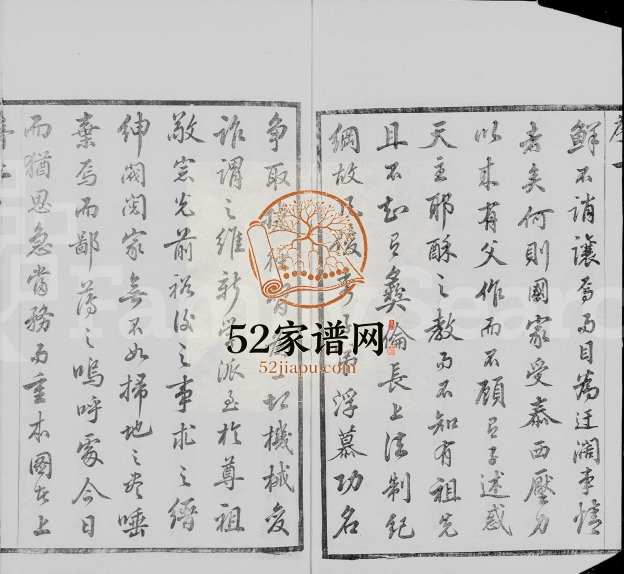 序一
鮮不誚讓焉而目為迂濶事情
者矣何則國家受泰西壓力
以來有父作而不顧有子述惑
天主耶酥之教而不知有祖先
且不知有彝倫長上法制紀
綱故不復
浮慕功名
争取
機械變
詐謂之維新學派至於尊祖
敬宗光前裕後之事求之縉
紳閥閱家無不如掃地之盡唾
棄焉而鄙薄之嗚呼處今日
而猶思急當務而重本圖者上
52家谱网
52jiapu.com
FamilySearch